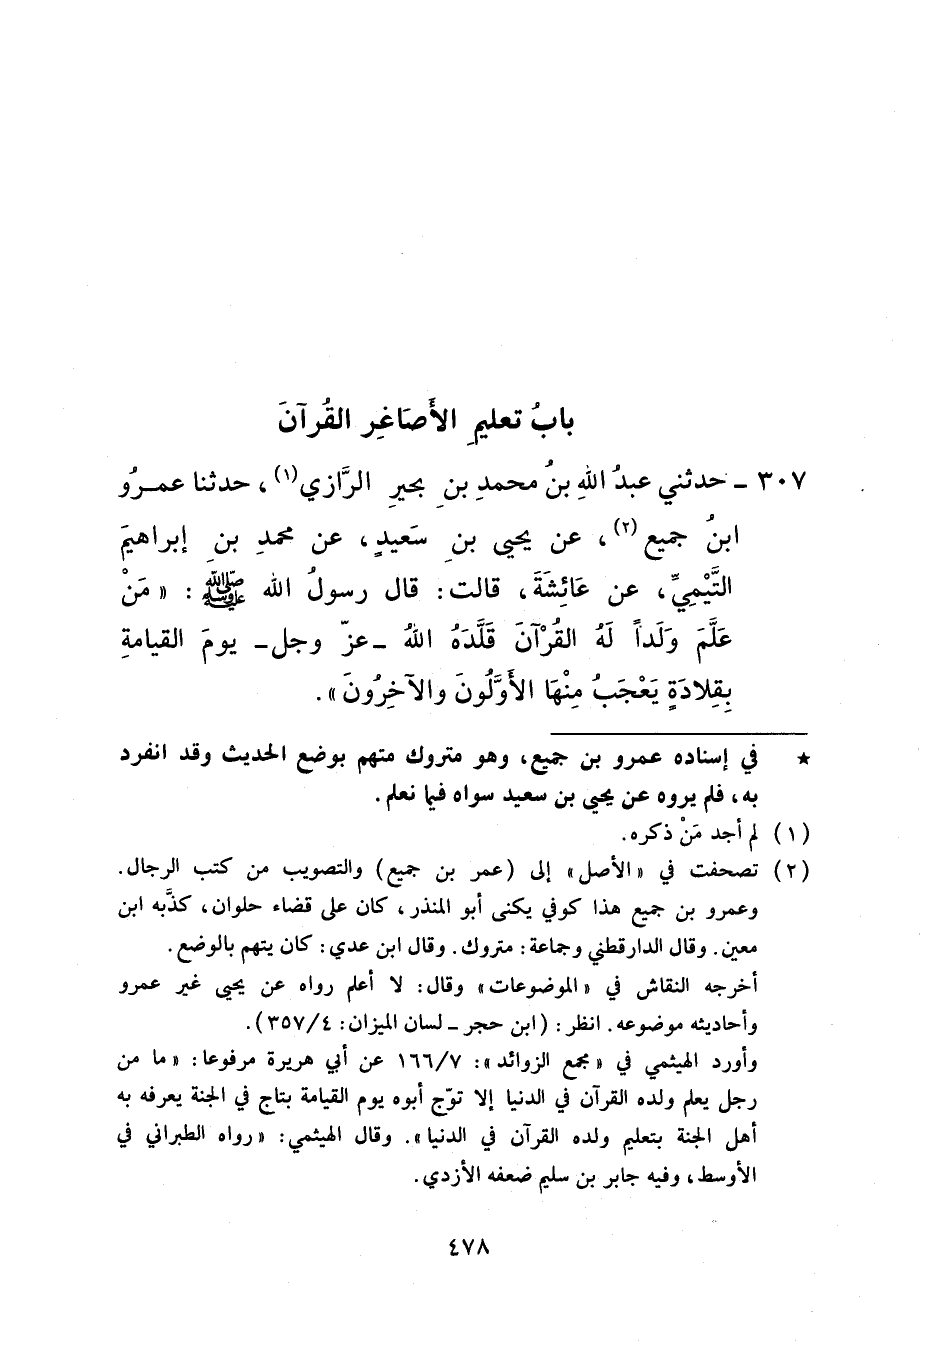 بابُ تعليمِ الأَصَاغِرِ القُرآنَ
٣٠٧ ـ حدثني عبدُ اللهِ بنُ محمدِ بنِ بحيرِ الرَّازي(١)، حدثنا عمـرُو
ابنُ جميع(٢)، عن يحيى بنِ سَعيدٍ، عن محمدِ بنِ إبراهيمَ
التَّيْمِيِّ، عن عَائِشَةَ، قالت: قال رسولُ الله ﷺ : « مَنْ
عَلَّمَ وَلَداً لَهُ القُرْآنَ قَلَّدَهُ اللهُ ـ عزّ وجل ـ يومَ القيامةِ
بِقِلادَةٍ يَعْجَبُ مِنْهَا الأَوَّلُونَ والآخِرُونَ».
★ في إسناده عمرو بن جميع، وهو متروك متهم بوضع الحديث وقد انفرد
به، فلم يروه عن يحيى بن سعيد سواه فيما نعلم.
(١) لم أجد مَنْ ذكره.
(٢) تصحفت في «الأصل» إلى (عمر بن جميع) والتصويب من كتب الرجال.
وعمرو بن جميع هذا كوفي يكنى أبو المنذر، كان على قضاء حلوان، كذَّبه ابن
معين. وقال الدارقطني وجماعة: متروك. وقال ابن عدي: كان يتهم بالوضع.
أخرجه النقاش في «الموضوعات» وقال: لا أعلم رواه عن يحيى غير عمرو
وأحاديثه موضوعه. انظر: (ابن حجر ـ لسان الميزان: ٣٥٧/٤).
وأورد الهيثمي في «مجمع الزوائد»: ١٦٦/٧ عن أبي هريرة مرفوعا: «ما من
رجل يعلم ولده القرآن في الدنيا إلا توّج أبوه يوم القيامة بتاج في الجنة يعرفه به
أهل الجنة بتعليم ولده القرآن في الدنيا». وقال الهيثمي: «رواه الطبراني في
الأوسط، وفيه جابر بن سليم ضعفه الأزدي.
٤٧٨